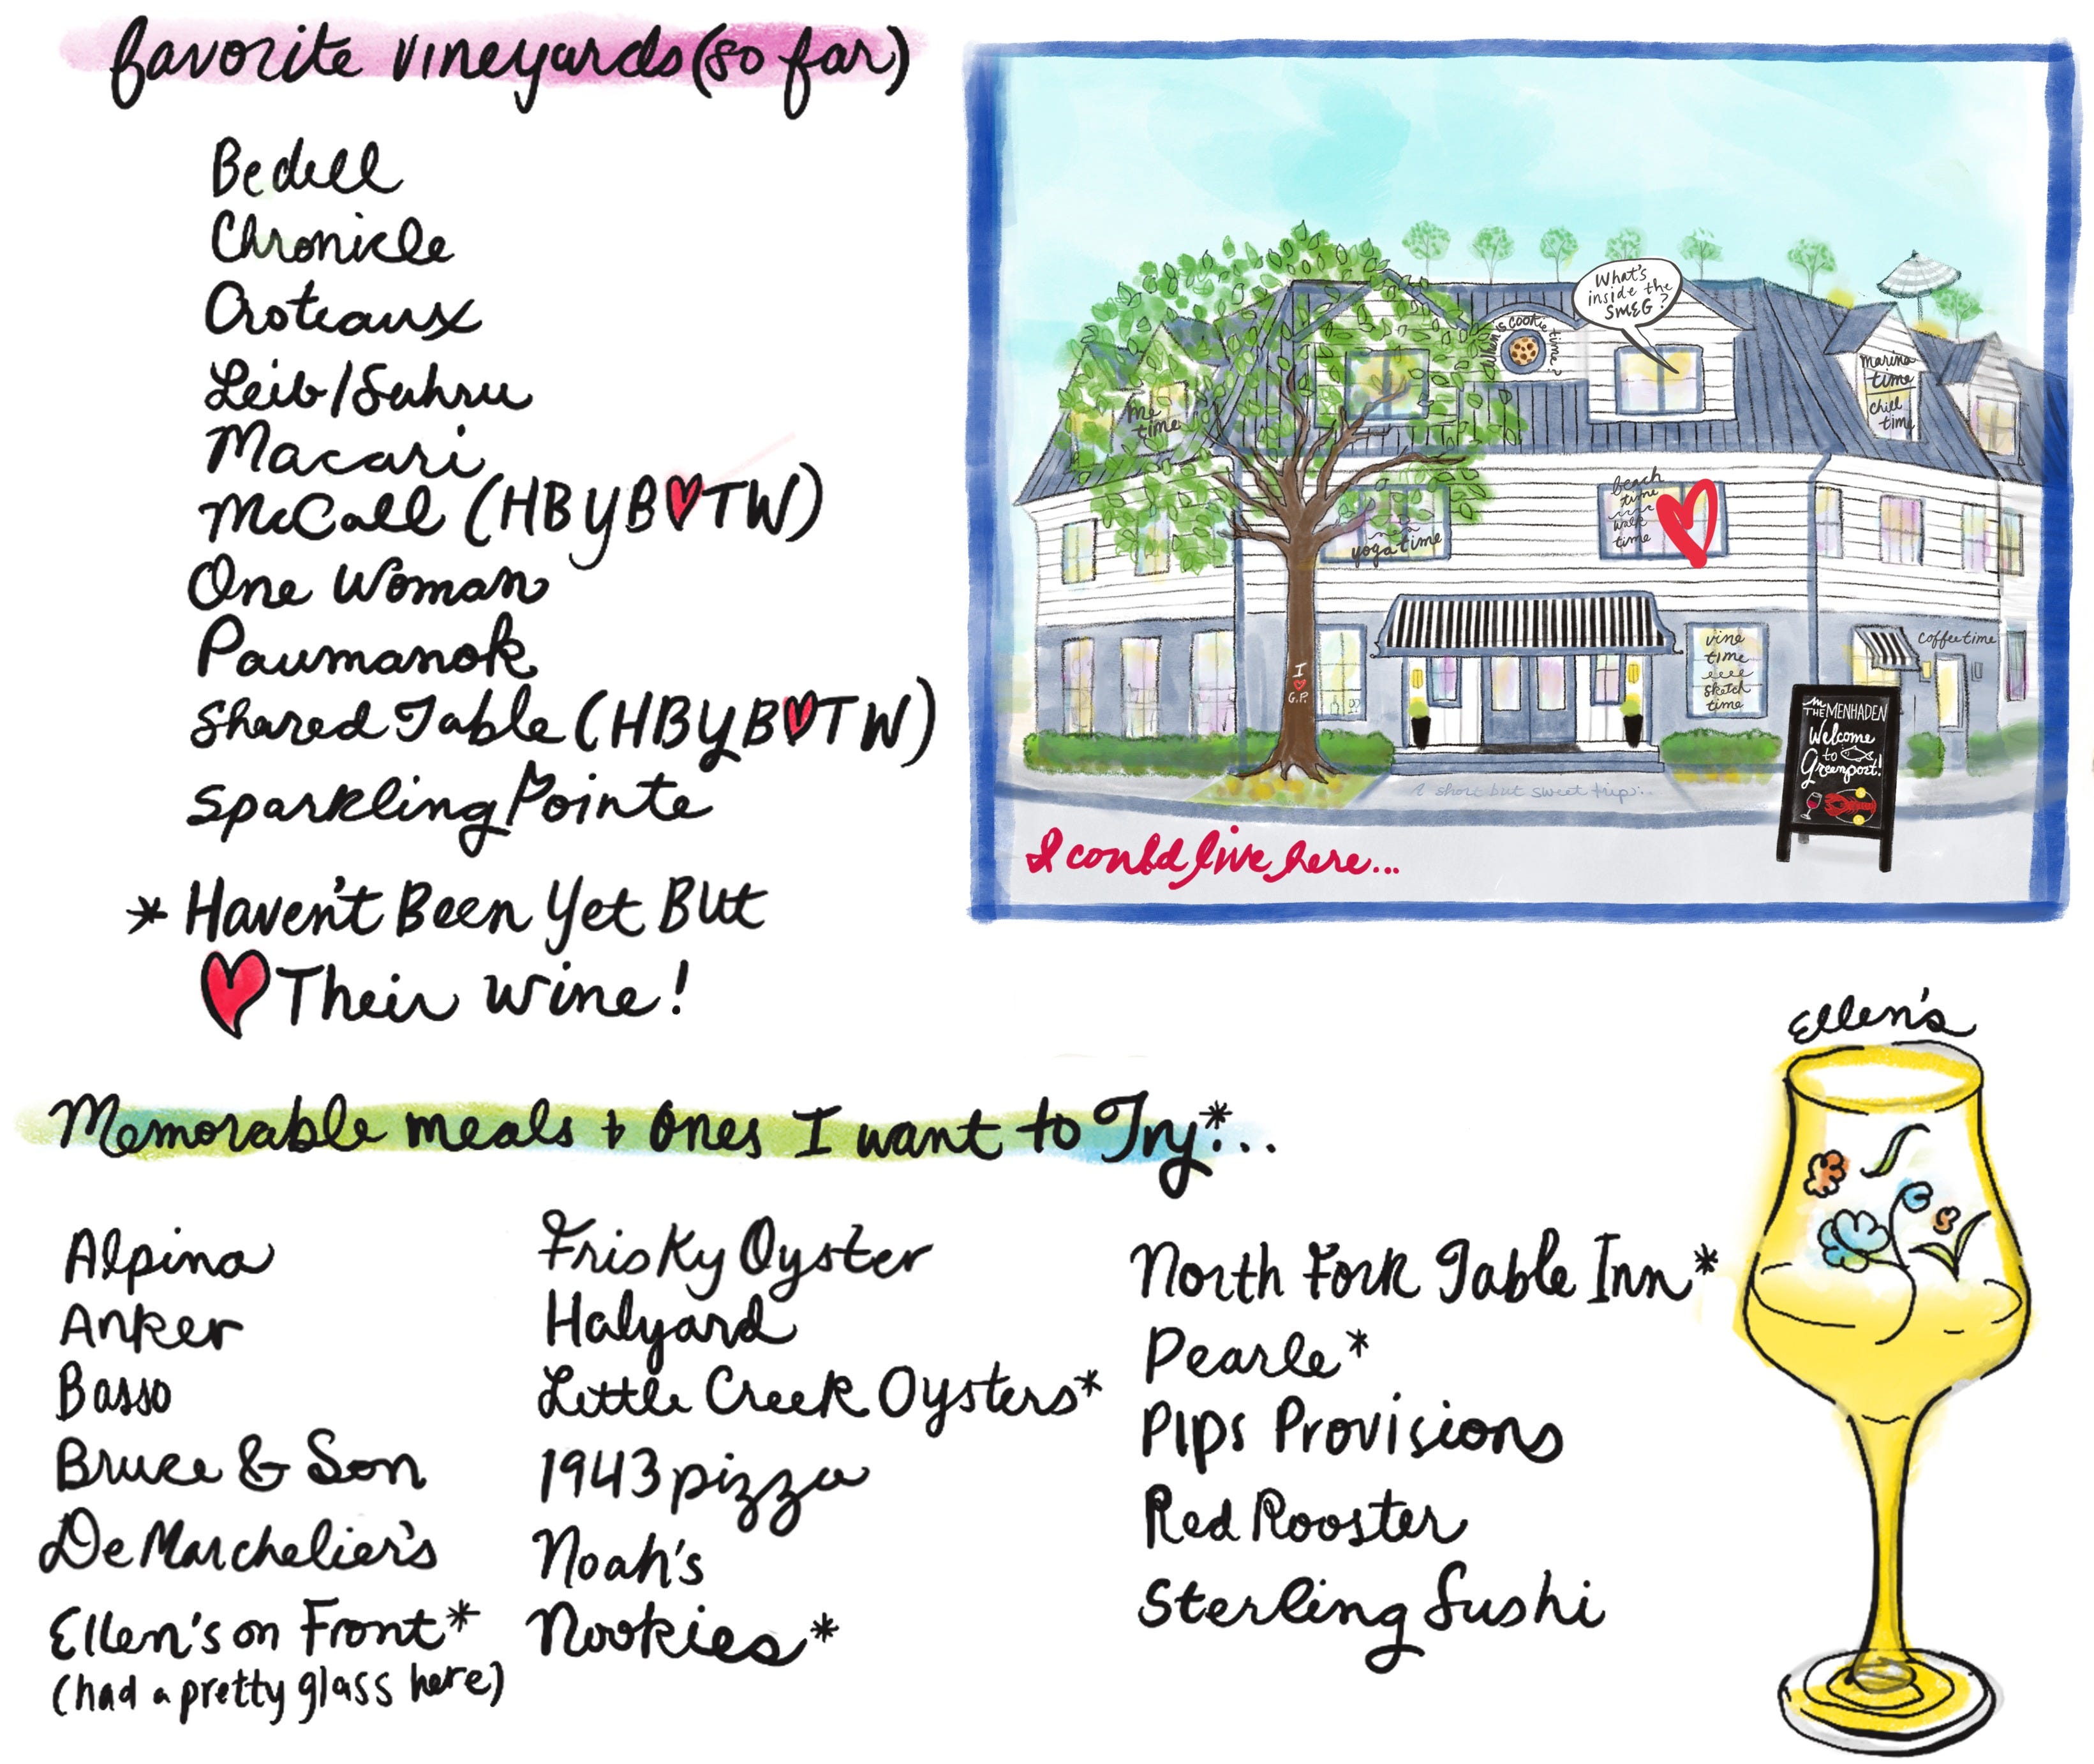 favorite vineyards (so far)
Bedell
Chronicle
Croteaux
Leib/Suhru
Macari
McCall (HBYB♥TW)
One Woman
Paumanok
Shared Table (HBYB♥TW)
Sparkling Pointe
* Haven't Been Yet But
♥ Their Wine!
What's
inside the
SMEG?
When is cookie time?
me
time
marina
time
chill
time
beach
time
walk
time
yoga time
I
♥
G.P.
vine
time
sketch
time
coffee time
THE MENHADEN
Welcome
to
Greenport!
A short but sweet trip...
I could live here...
Ellen's
Memorable meals + ones I want to Try*...
Alpina
Anker
Basso
Bruce & Son
DeMarchelier's
Ellen's on Front*
(had a pretty glass here)
Frisky Oyster
Halyard
Little Creek Oysters*
1943 pizza
Noah's
Nookies*
North Fork Table Inn*
Pearle*
PIPS Provisions
Red Rooster
Sterling Sushi